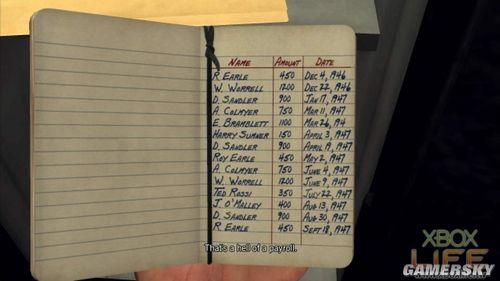 NAME AMOUNT DATE
R. EARLE 450 DEC 4, 1946
W. WORRELL 1200 DEC 22, 1946
D. SANDLER 900 JAN 17, 1947
A. COLMYER 750 MAR 11, 1947
E. BRAMBLETT 1100 MAR 26, 194
HARRY SUMNER 150 APRIL 3, 1947
D. SANDLER 900 APRIL 19, 1947
ROY EARLE 450 MAY 2, 1947
A. COLMYER 750 JUNE 4, 1947
W. WORRELL 1200 JUNE 9, 1947
TED ROSSI 350 JULY 22, 1947
J. O'MALLEY 400 AUG 13, 1947
D. SANDLER 900 AUG 30, 1947
R. EARLE 450 SEPT 18, 1947
That's a hell of a payroll.
XBOX
LIFE
GAMERSKY